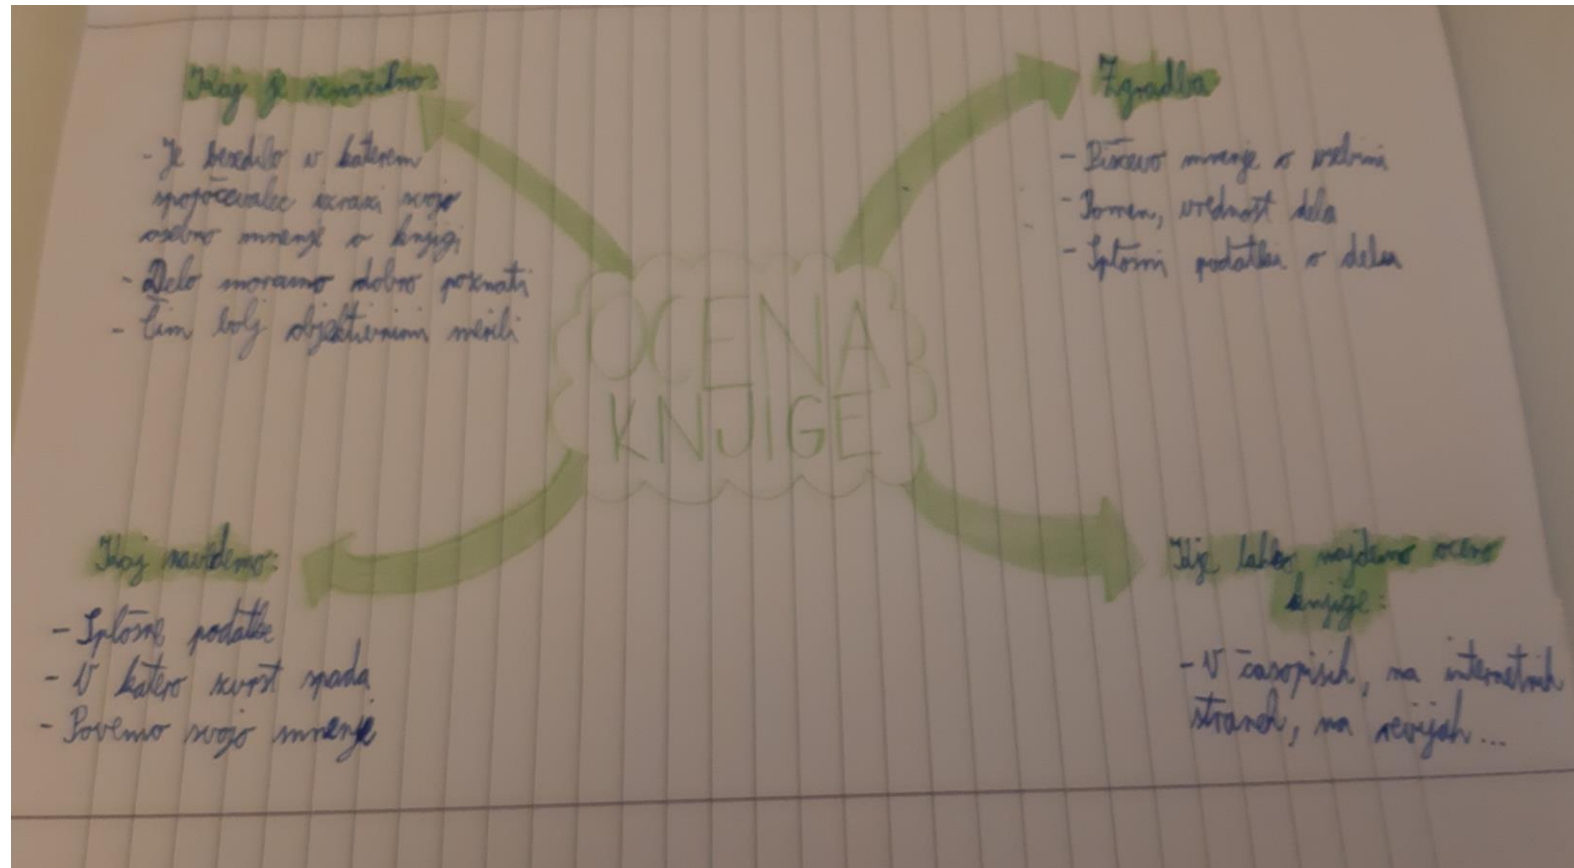 Kaj je značilno:
- Je besedilo v katerem
spopočevalec izrazi svojo
osebno mnenje o knjigi
- Delo moramo dobro poznati
- Čim bolj objektivnimi merili
Zgradba
- Piščevo mnenje o vsebini
- Pomen, vrednost dela
- Splošni podatki o delu
OCENA
KNJIGE
Kaj navedemo:
- Splošne podatke
- V katero zvrst spada
- Povemo svojo mnenje
Kje lahko najdemo oceno
knjige:
- V časopisih, na internetnih
straneh, na revijah...